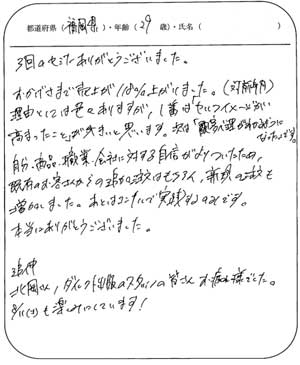 都道府県（福岡県）・年齢（29 歳）・氏名（ ）
3回のセミナーありがとうございました。
おかげさまで売上が118％上がりました。（対前年月）
理由としては色々ありますが、1番は「セルフイメージが
高まったこと」が大きいと思います。次は
自分、商品、職業、会社に対する自信がよりついたため、
既存のお客さんからの追加注文はもちろん、新規の注文も
増加しました。あとはコンテンツで実践するのみです。
本当にありがとうございました。
追伸
北岡さん、ダイレクト出版のスタッフの皆さん お疲れ様でした。
も楽しみにしています！